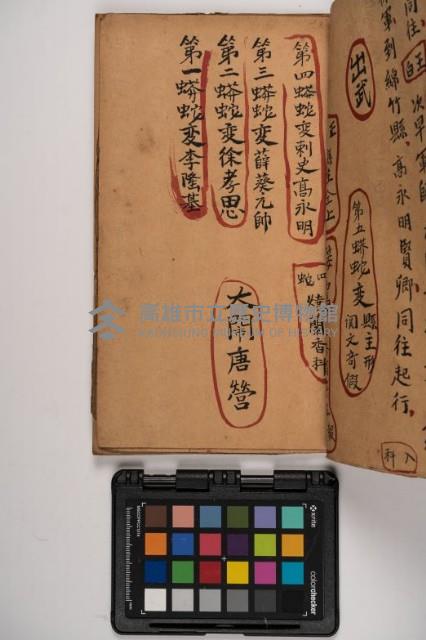 同往
白王
次早軍師
軍到綿竹縣高永明賢卿同往起行
入科
出武
第五蟒蛇變
縣主形
闵文奇假
第四蟒蛇變刺史高永明
四蛇
燒聞香科
第三蟒蛇變薛葵元帥
第二蟒蛇變徐孝思
大鬧唐營
第一蟒蛇變李隆基
高雄市立歷史博物館
KAOHSIUNG MUSEUM OF HISTORY
x-rite
colorchecker